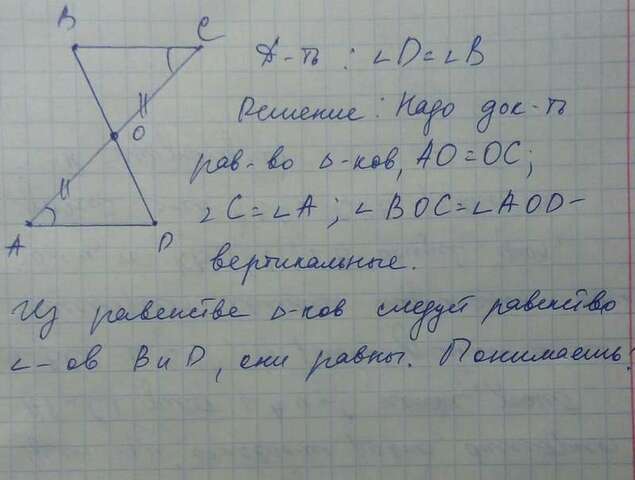 B C
Д-ть: ∠D=∠B
O
Решение: Надо док-ть
рав-во Δ-ков, AO=OC;
∠C=∠A; ∠BOC=∠AOD-
A D
вертикальные.
Из равенстве Δ-ков следует равенство
∠-ов B и D, они равны. Понимаешь?